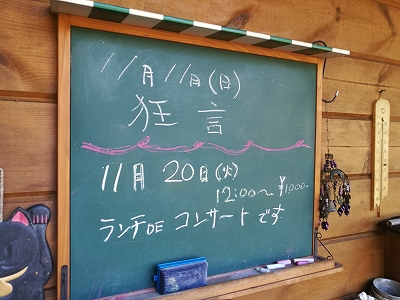 11月11日(日)
狂言
11月 20日(火)
12:00〜 ¥1000-
ランチDE コンサートです